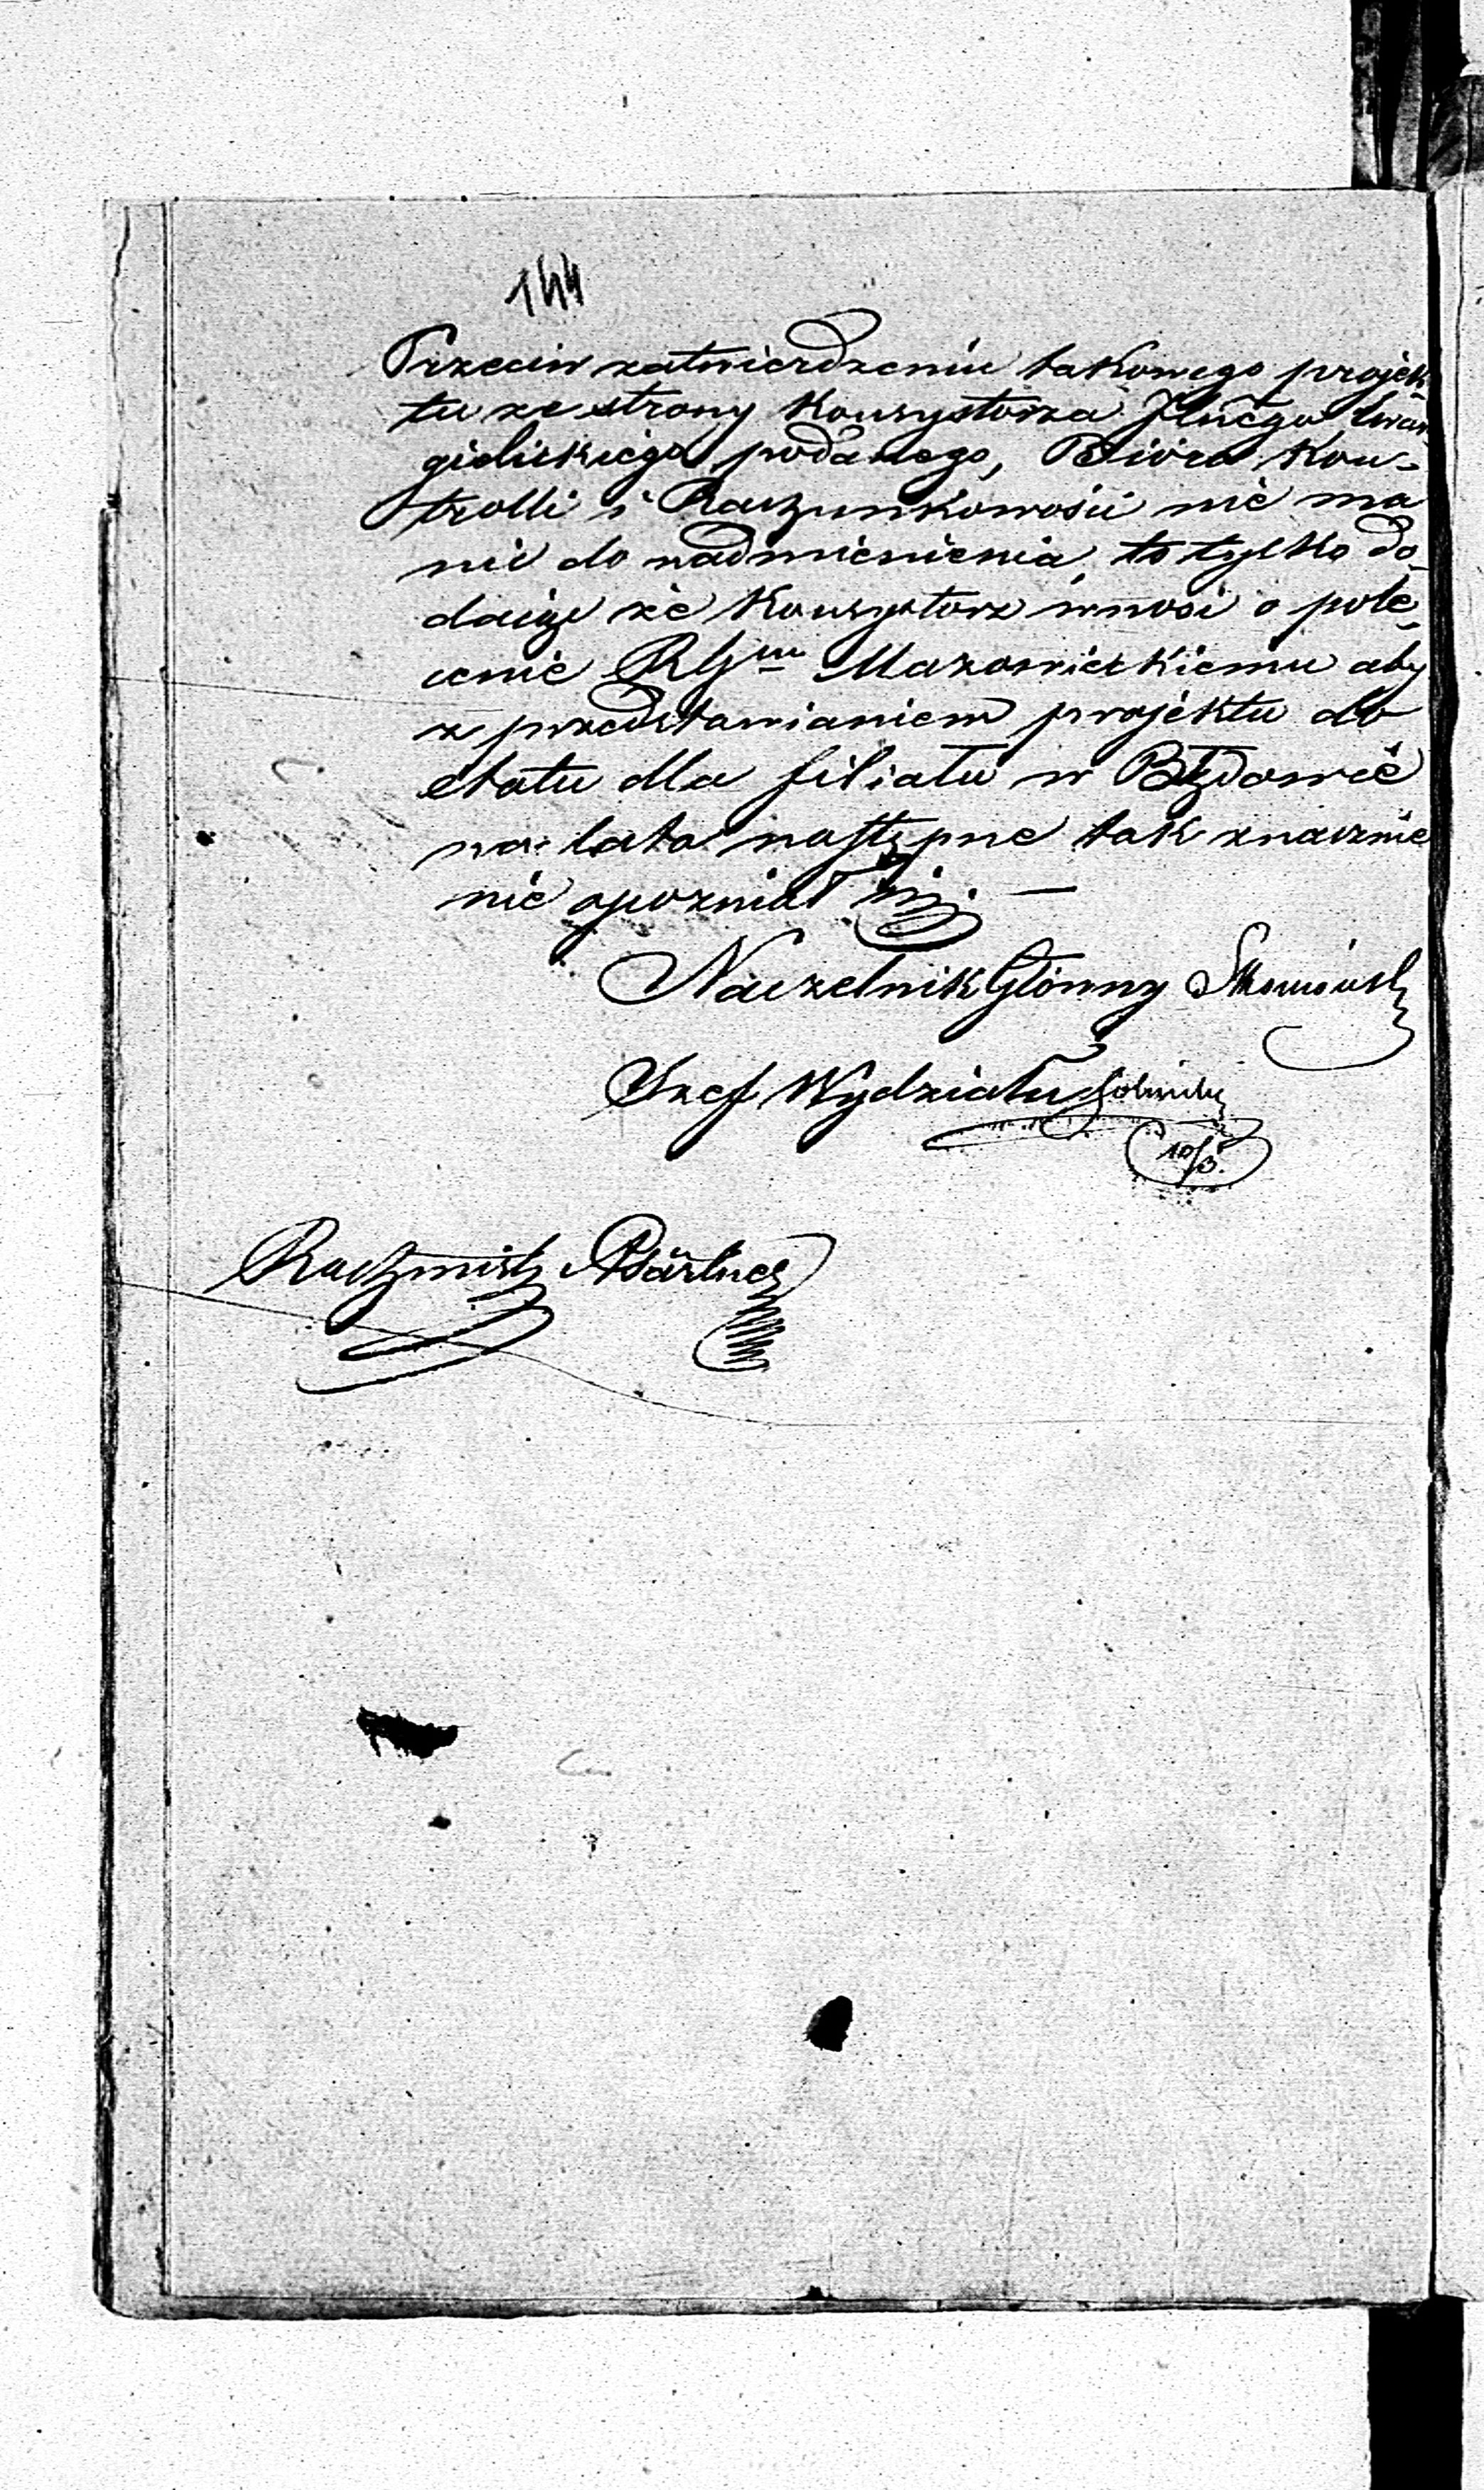 144
Przeciw zatwierdzeniu takowego projek
tu ze strony Konsystorza Jlnego Ewan
gielickiego podanego, Bióro Kon-
trolli i Rachunkowości nic ma
nic do nadmienienia, to tylko do
daiąc że Konsystorz wnosi o pole
cenie RGmu Mazowieckiemu aby
z przedstawianiem projektu do
etatu dla filiału w Błędowie
na lata następne tak znacznie
nie opozniał się. —
Naczelnik Główny
Szef Wydziału
10/3.
Rachmistrz